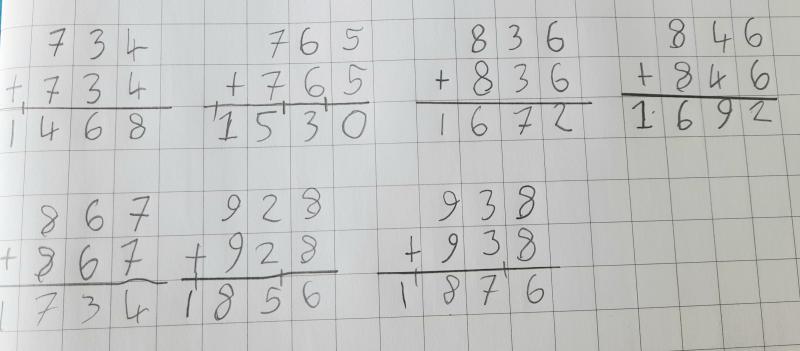 734 765 836 846
+734 +765 +836 +846
1468 1530 1672 1692
867 928 938
+867 +928 +938
1734 1856 1876